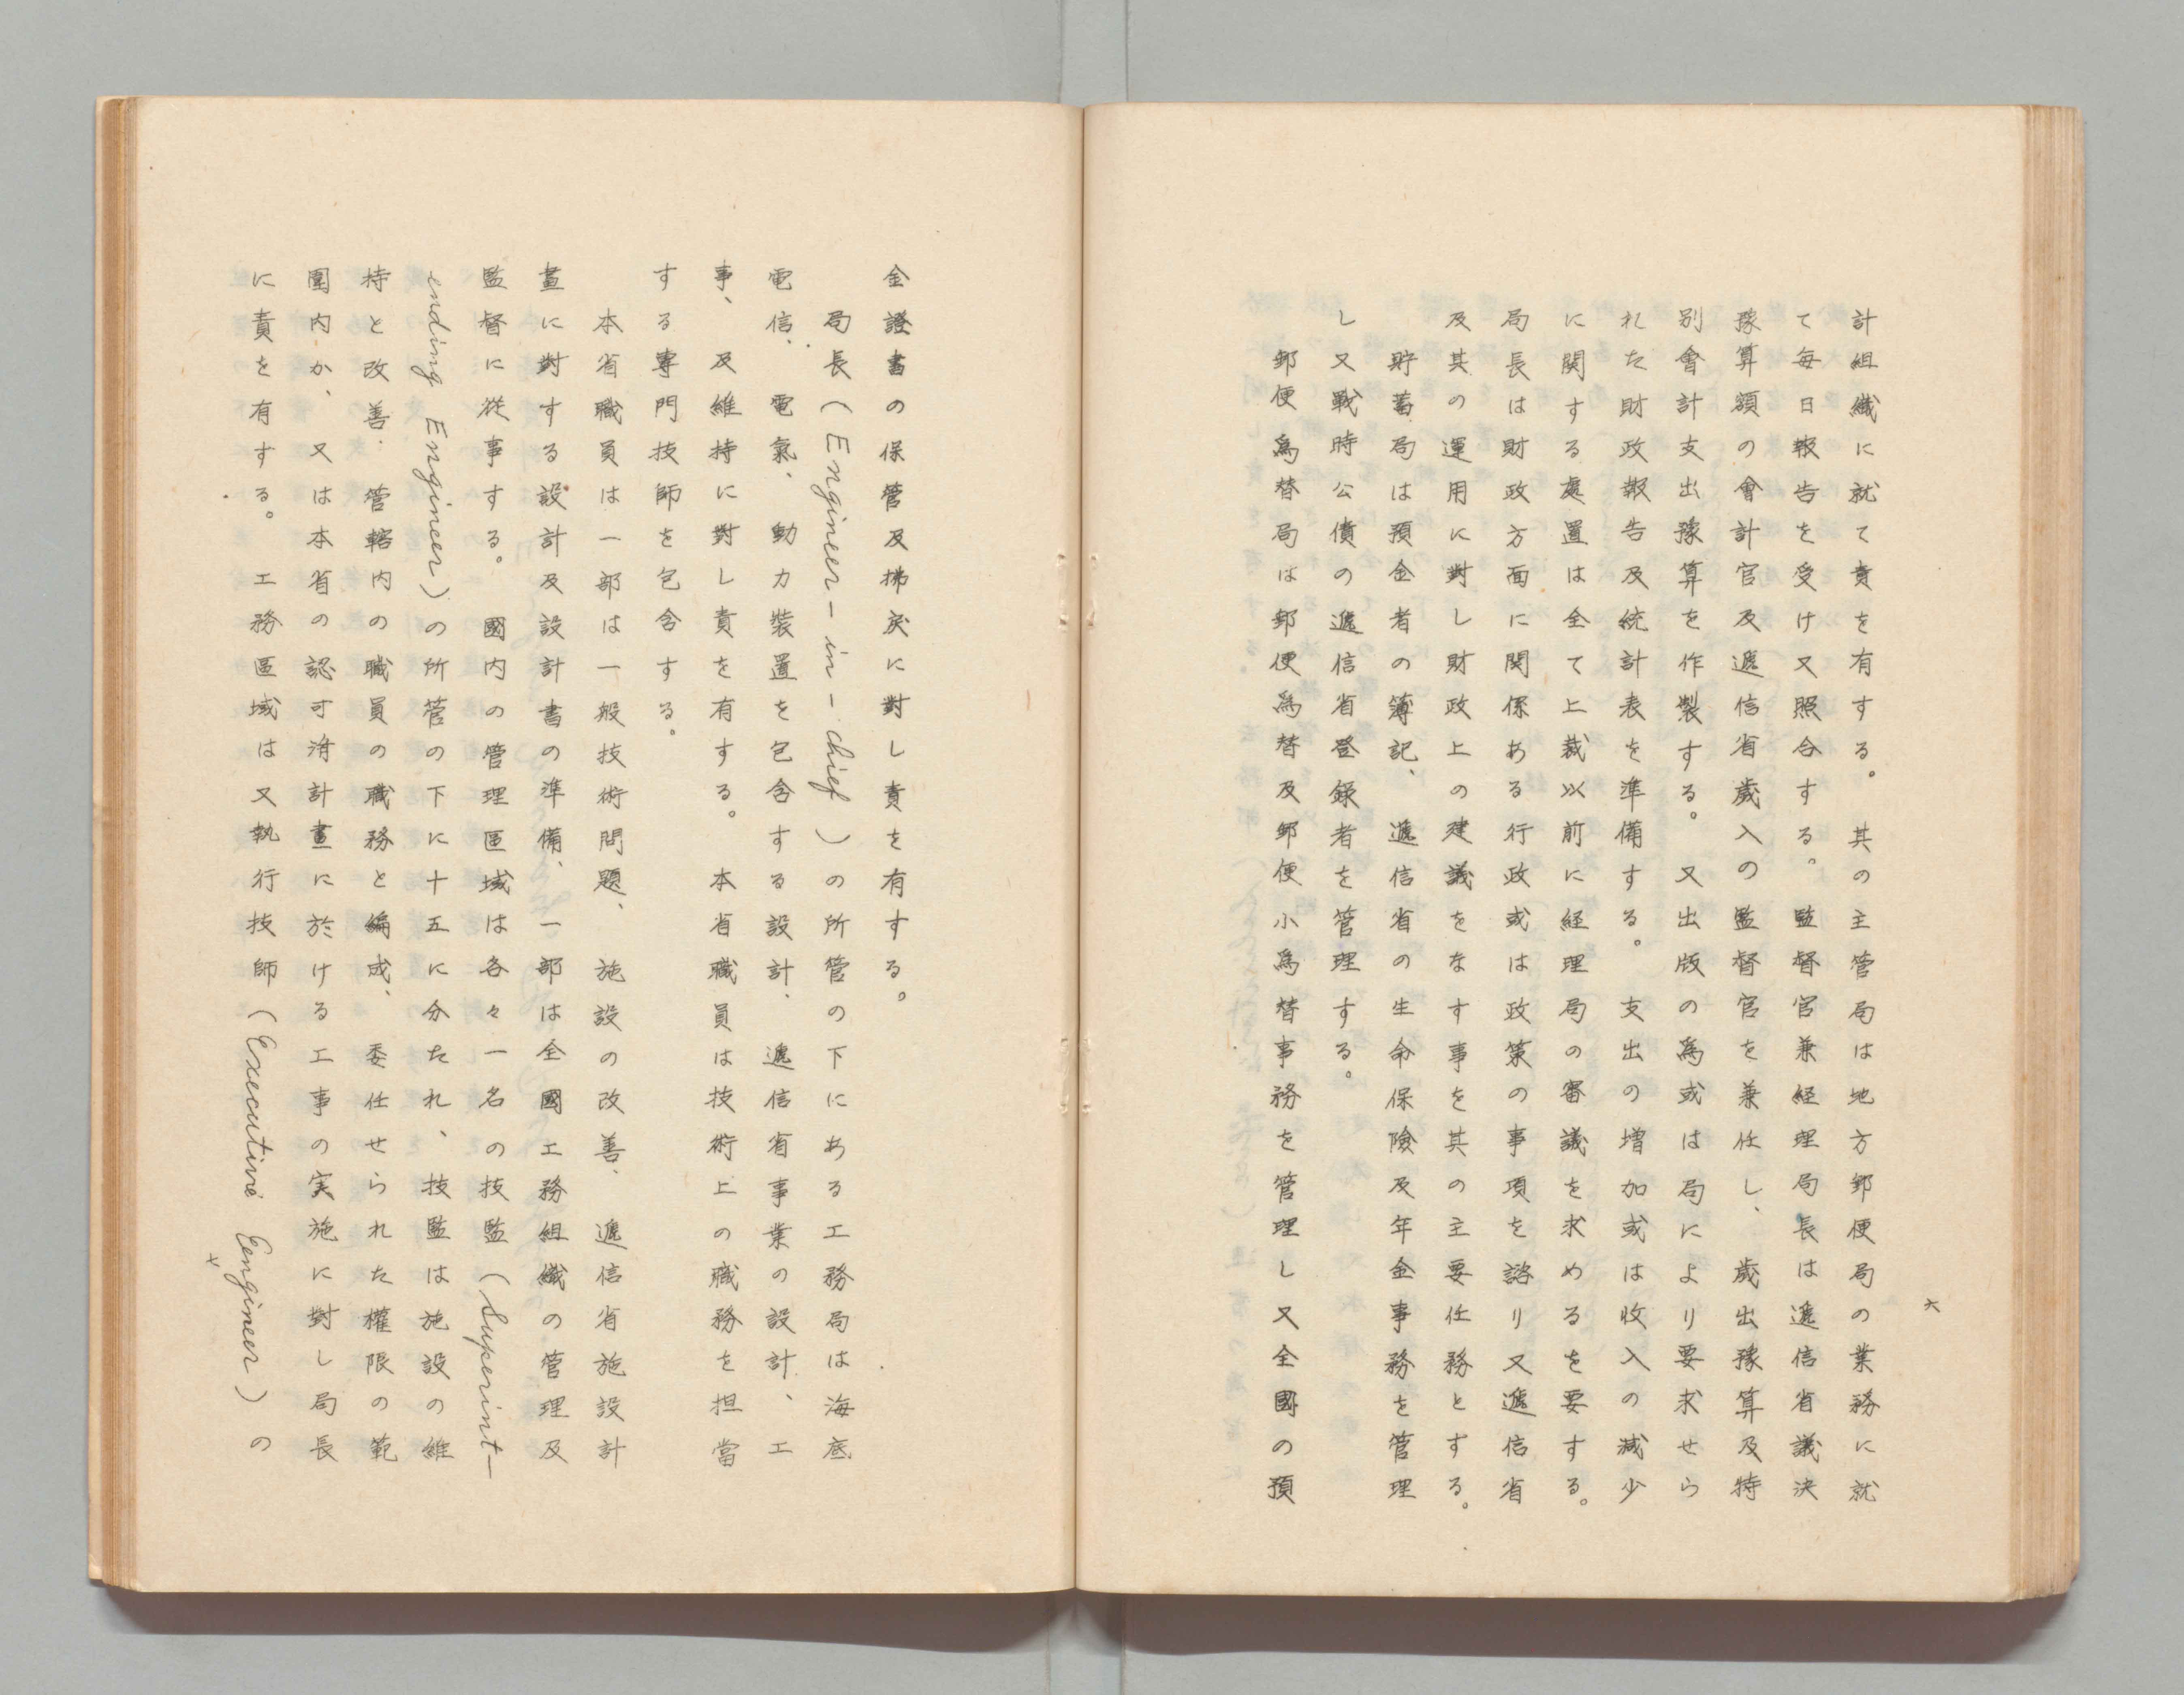 六
計組織に就て責を有する。其の主管局は地方郵便局の業務に就
て毎日報告を受け又照合する。監督官兼経理局長は逓信省議決
豫算額の會計官及遞信省歳入の監督官を兼任し、歳出豫算及特
別會計支出豫算を作製する。又出版の為或は局により要求せら
れた財政報告及統計表を準備する。支出の増加或は收入の減少
に関する處置は全て上裁以前に経理局の審議を求めるを要する。
局長は財政方面に関係ある行政或は政策の事項を諮り又遞信省
及其の運用に對し財政上の建議をなす事を其の主要任務とする。
貯蓄局は預金者の簿記、遞信省の生命保險及年金事務を管理
し又戰時公債の遞信省登録者を管理する。
郵便為替局は郵便為替及郵便小為替事務を管理し又全國の預
金證書の保管及拂戻に對し責を有する。
局長(Engineer-in-chief)の所管の下にある工務局は海底
電信、電氣、動力裝置を包含する設計、遞信省事業の設計、工
事、及維持に對し責を有する。本省職員は技術上の職務を担當
する專門技師を包含する。
本省職員は一部は一般技術問題、施設の改善、遞信省施設計
畫に對する設計及設計書の準備、一部は全國工務組織の管理及
監督に從事する。國内の管理區域は各々一名の技監(Superint-
ending Engineer)の所管の下に十五に分たれ、技監は施設の維
持と改善、管轄内の職員の職務と編成、委任せられた權限の範
圍内か、又は本省の認可済計畫に於ける工事の実施に對し局長
に責を有する。工務區域は又執行技師(Executive Eengineer)の
七